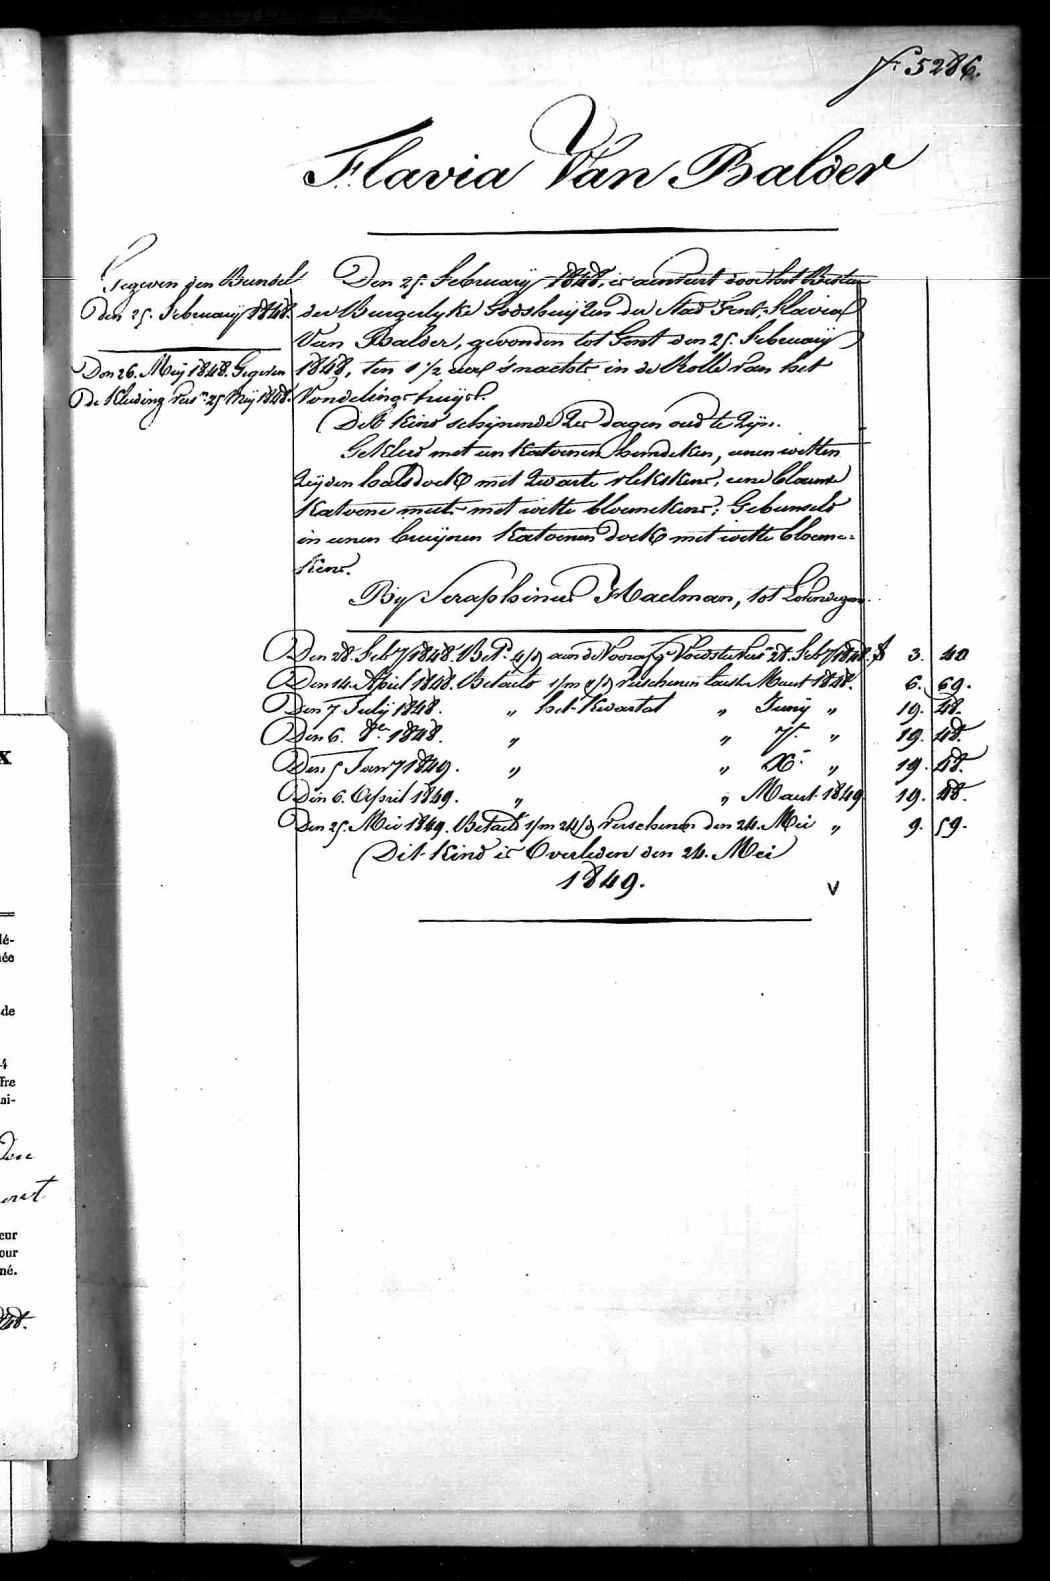 f. 5286.
Flavia Van Balder
Gegeven den Bundel
Den 25. February 1848.
Den 26. Meij 1848. Gegeven
De Kleeding vers. 25 Meij 1848.
Den 25. February 1848, is aenveirt door het Bestier
der Burgerlyke Godshuijzen der Stad Gent, Flavia
Van Balder, gevonden tot Gent den 25. February
1848, ten 1 1/2 uer s'nachts in de Rolle van het
Vondelingshuijs.
Dit Kind schijnende dagen oud te zijn.
Gekleed met een Katoenen hemdeken, eenen witten
Zijden halsdoek met zwarte vlekskens, eene blauwe
Katoene muts met witte bloemekens; Gebunseld
in eenen bruijnen Katoenen doek met witte bloeme-
kens.
By Seraphinus Haelman, tot
Den 28. Feby 1848. Bet. 28. Feby 1848. 3. 40
Den 14. April 1848. Betaelt verschenen Maert 1848. 6. 69.
Den 7 Julij 1848. " het Kwartal " Junij " 19. 48.
Den 6. 8er 1848. " " 7r " 19. 48.
Den 5 Jany 1849. " " Xr " 19. 48.
Den 6. April 1849. " " Maert 1849 19. 48.
Den 25. Mei 1849. Betaelt verschenen den 24. Mei " 9. 59.
Dit Kind is Overleden den 24. Mei
1849. v
x
lé-
ée
de
4
ffre
ai-
eur
our
né.